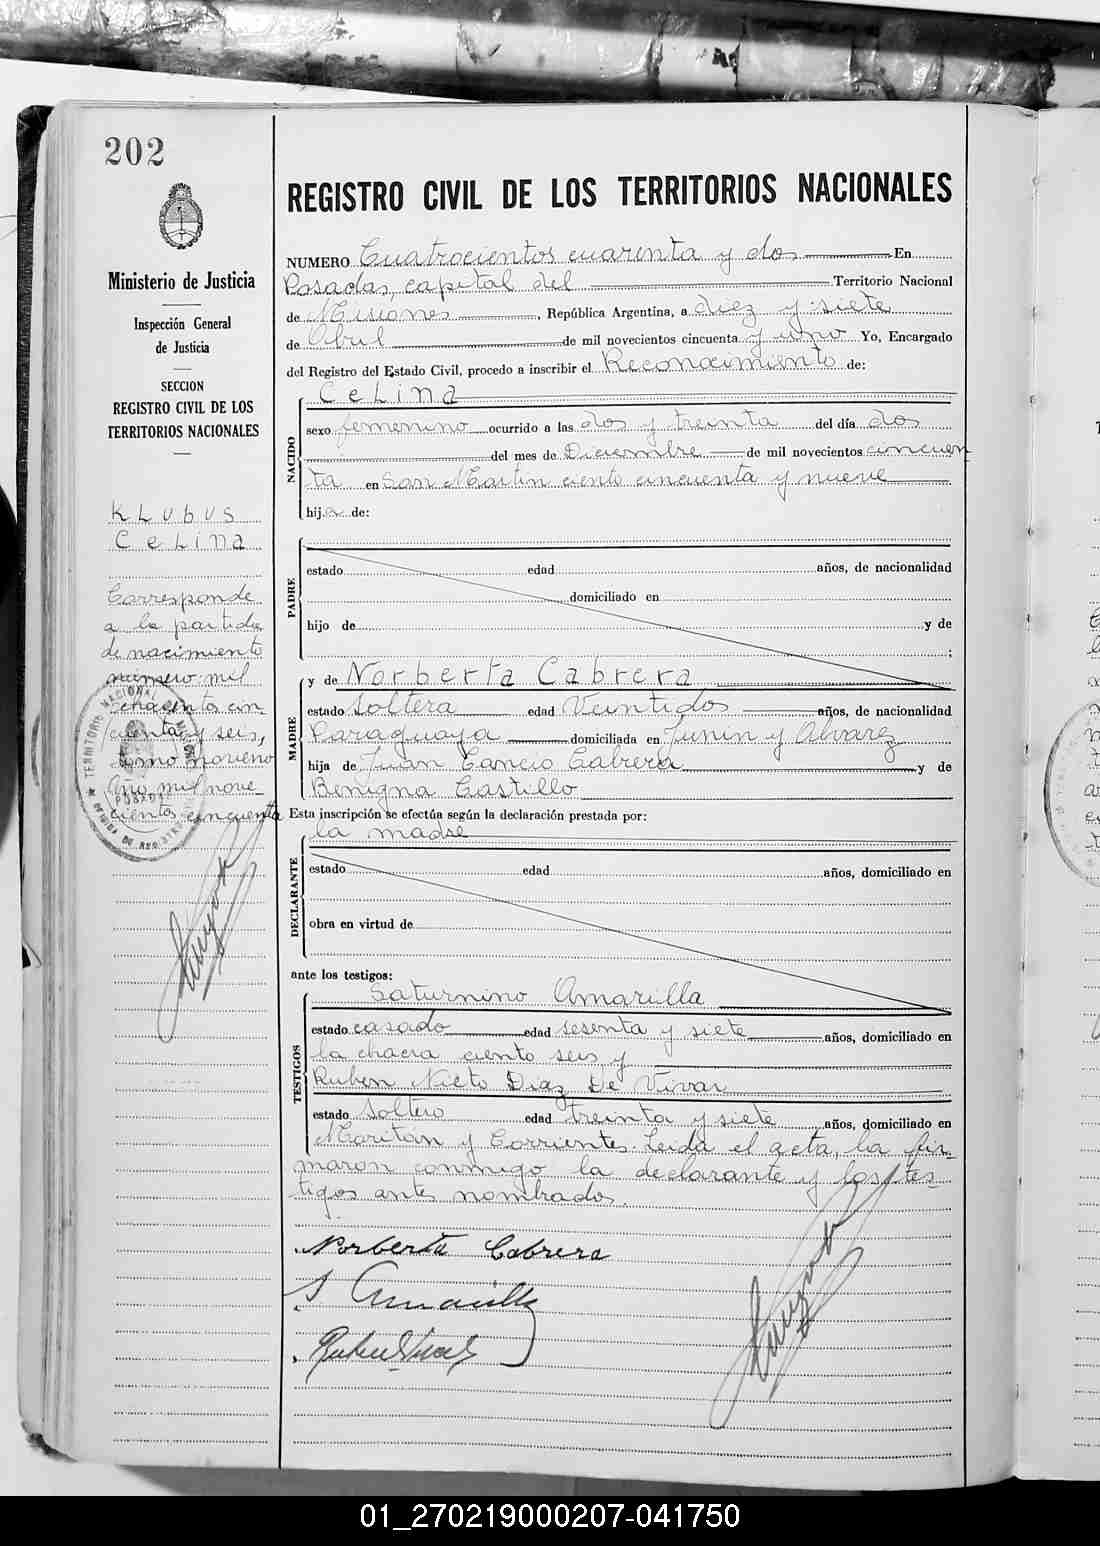 202
Ministerio de Justicia
Inspección General
de Justicia
SECCION
REGISTRO CIVIL DE LOS
TERRITORIOS NACIONALES
KLUBUS
CELINA
Corresponde
a la partida
de nacimiento
número mil
ochocientos cin-
cuenta y seis,
tomo noveno
Año mil nove-
cientos cincuenta
REGISTRO CIVIL DE LOS TERRITORIOS NACIONALES
NUMERO Cuatrocientos cuarenta y dos En
Posadas, capital del Territorio Nacional
de Misiones, República Argentina, a diez y siete
de Abril de mil novecientos cincuenta y uno Yo, Encargado
del Registro del Estado Civil, procedo a inscribir el Reconocimiento de:
CELINA
NACIDO
sexo femenino ocurrido a las dos y treinta del día dos
del mes de Diciembre de mil novecientos cincuen
ta en San Martin ciento cincuenta y nueve
hija de:
PADRE
estado edad años, de nacionalidad
domiciliado en
hijo de y de
;
y de Norberta Cabrera
MADRE
estado soltera edad Veintidos años, de nacionalidad
Paraguaya domiciliada en Junin y Alvarez
hija de Juan Cancio Cabrera y de
Benigna Castillo
Esta inscripción se efectúa según la declaración prestada por:
la madre
DECLARANTE
estado edad años, domiciliado en
obra en virtud de
ante los testigos:
Saturnino Amarilla
TESTIGOS
estado casado edad sesenta y siete años, domiciliado en
la chacra ciento seis y
Ruben Nieto Diaz De Vivar
estado soltero edad treinta y siete años, domiciliado en
Maritán y Corrientes. Leida el acta, la fir-
maron conmigo la declarante y los tes-
tigos antes nombrados.
Norberta Cabrera
S Amarilla
01_270219000207-041750